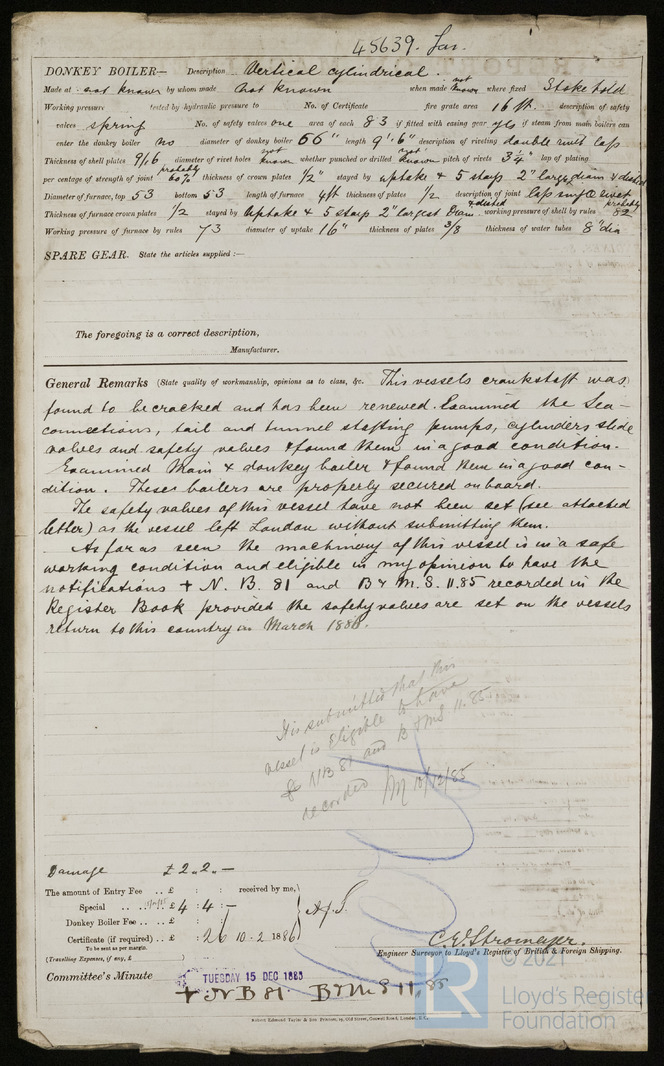 45639. Lon.
DONKEY BOILER— Description Vertical cylindrical.
Made at not known by whom made not known when made not known where fixed Stoke hold
Working pressure tested by hydraulic pressure to No. of Certificate fire grate area 16 ft. description of safety
valves spring No. of safety valves one area of each 8 3 if fitted with easing gear yes if steam from main boilers can
enter the donkey boiler no diameter of donkey boiler 66" length 9'.6" description of riveting double rivet lap
Thickness of shell plates 9/16 diameter of rivet holes not known whether punched or drilled not known pitch of rivets 3 1/4" lap of plating
per centage of strength of joint probably 60% thickness of crown plates 1/2" stayed by uptake & 5 stays 2" large diam & dished
Diameter of furnace, top 53 bottom 53 length of furnace 4ft thickness of plates 1/2 description of joint lap single rivet
Thickness of furnace crown plates 1/2 stayed by Uptake & 5 stays 2" largest Diam & dished working pressure of shell by rules probably 82
Working pressure of furnace by rules 73 diameter of uptake 16" thickness of plates 3/8 thickness of water tubes 8" dia
SPARE GEAR. State the articles supplied :—
The foregoing is a correct description,
Manufacturer.
General Remarks (State quality of workmanship, opinions as to class, &c. This vessels crankshaft was
found to be cracked and has been renewed. Examined the Sea-
connections, tail and tunnel shafting pumps, cylinders slide
valves and safety valves & found them in a good condition.
Examined Main & donkey boiler & found them in a good con-
dition. These boilers are properly secured on board.
The safety valves of this vessel have not been set (see attached
letter) as the vessel left London without submitting them.
As far as seen the machinery of this vessel is in a safe
working condition and eligible in my opinion to have the
notifications + N. B. 81 and B & M. S. 11.85 recorded in the
Register Book provided the safety valves are set on the vessels
return to this country in March 1886.
It is submitted that this
vessel is eligible to have
& NB 81 and B & MS 11.85
recorded 10/12/85
Damage £2.2.—
The amount of Entry Fee .. £ : : received by me,
Special .. .. £ 4 : 4 : —
Donkey Boiler Fee .. .. £ : :
Certificate (if required) .. £ : 2 6 10.2.1886
To be sent as per margin.
(Travelling Expenses, if any, £ )
C. E. Stromeyer.
Engineer Surveyor to Lloyd's Register of British & Foreign Shipping.
Committee's Minute TUESDAY 15 DEC 1885
+ NB 81. B & M S 11,85
© 2021
LR
Lloyd's Registe
Foundation